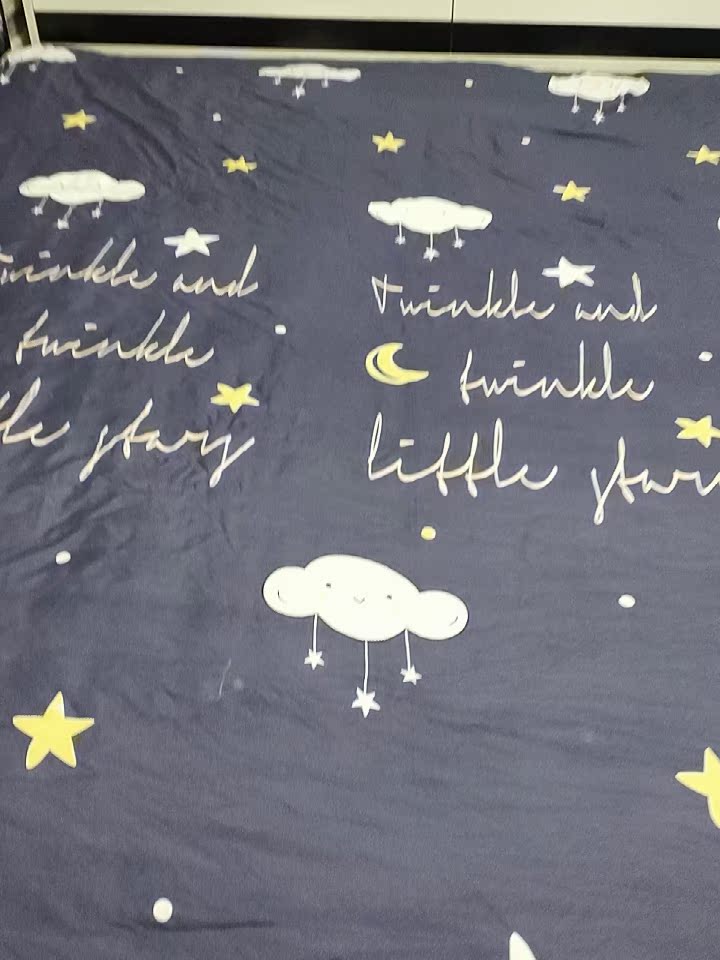 twinkle and
twinkle
tle stary
twinkle and
twinkle
little stary